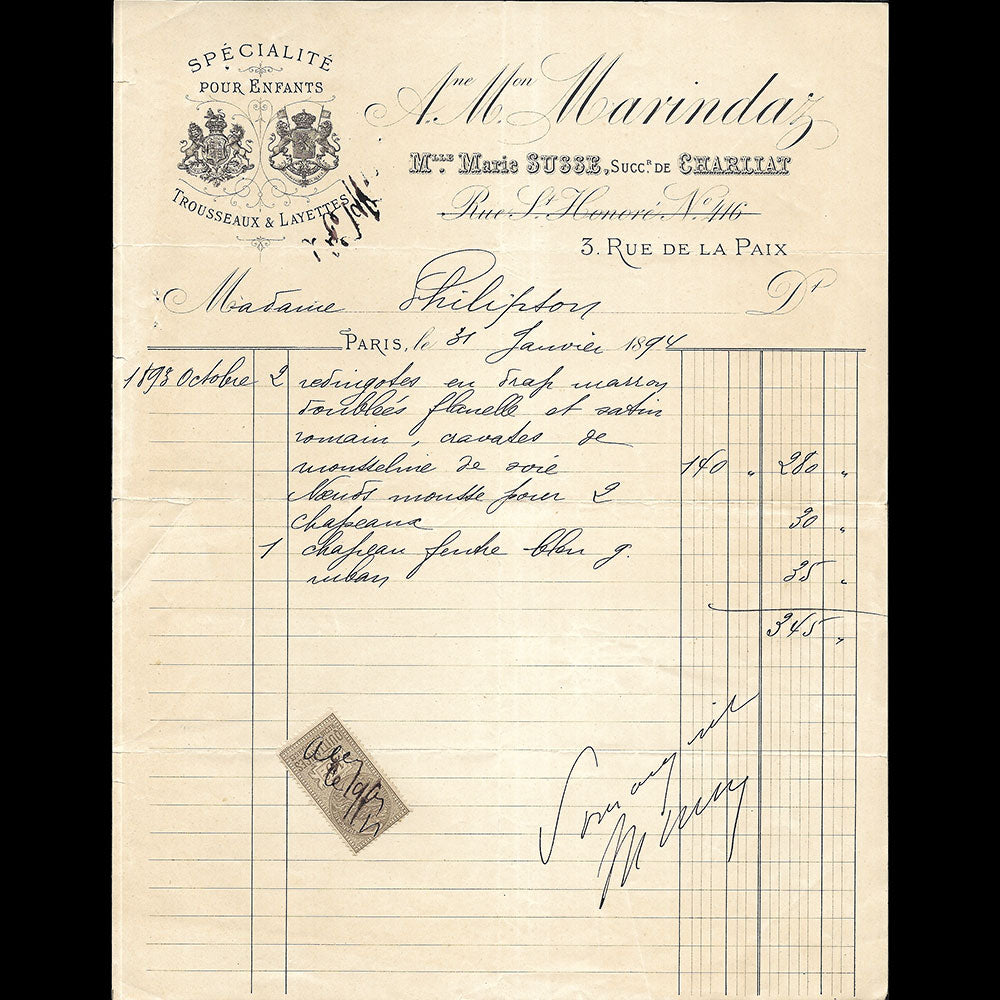 SPÉCIALITÉ
POUR ENFANTS
TROUSSEAUX & LAYETTES
Ane. Mon. Marindaz
MLLE Marie SUSSE, SUCCR DE CHARLIAT
Rue St. Honoré No. 416
3. RUE DE LA PAIX
Madame Philipson Dt
PARIS, le 31 Janvier 1894
1893 Octobre 2 redingotes en drap marron
doublées flanelle et satin
romain, cravates de
mousseline de soie 140 " 280 "
Nœuds mousse pour 2
chapeaux 30 "
1 chapeau feutre bleu g.
ruban 35 "
345 "
Pour acquit